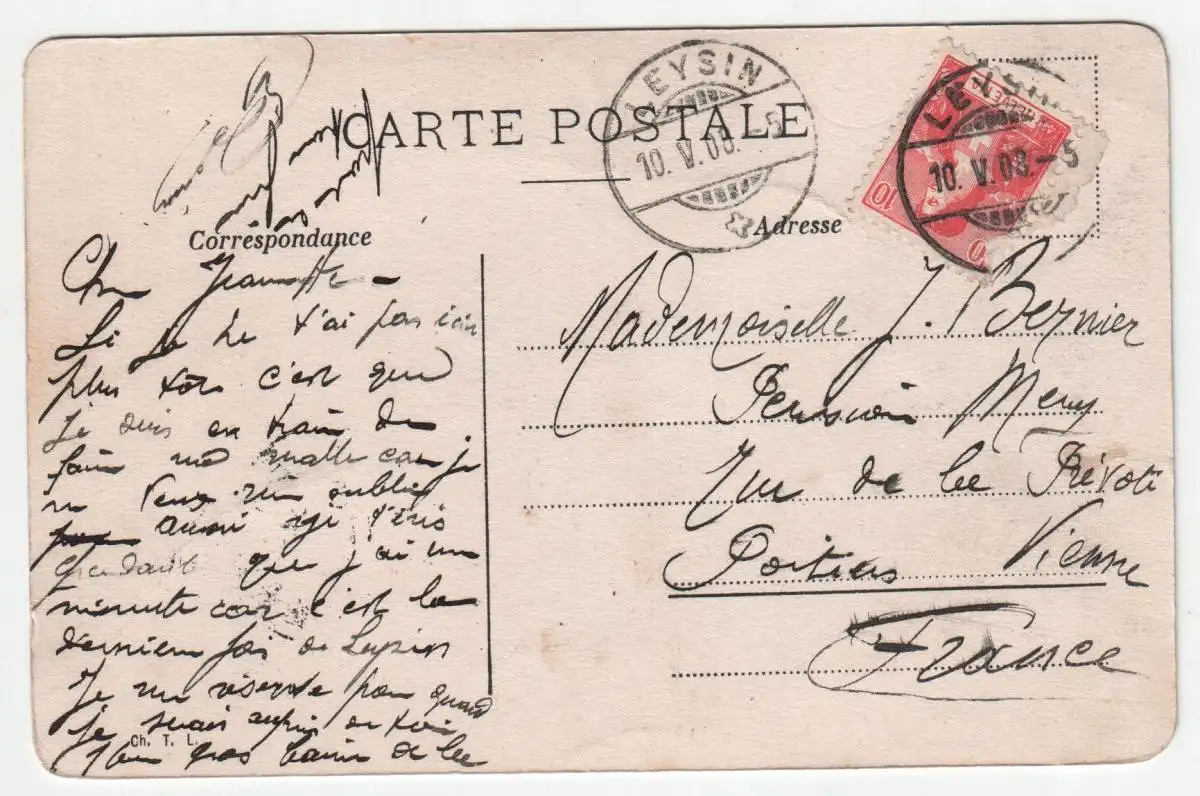 CARTE POSTALE
LEYSIN
10. V. 08. - 5
LEYSIN
10. V. 08. - 5
HELVETIA
10
Correspondance
Adresse
Chère Jeannette -
Si je ne t'ai pas écrit
plus tôt c'est que
je suis en train de
faire ma malle car je
ne veux rien oublier
aussi j'écris
pendant que j'ai une
minute car c'est la
dernière fois de Leysin
Je me réserve pour quand
je serai auprès de toi
Un gros baiser de
Ch. T. L.
Mademoiselle J. Bernier
Pension Mery
Rue de la Prévôté
Poitiers Vienne
France